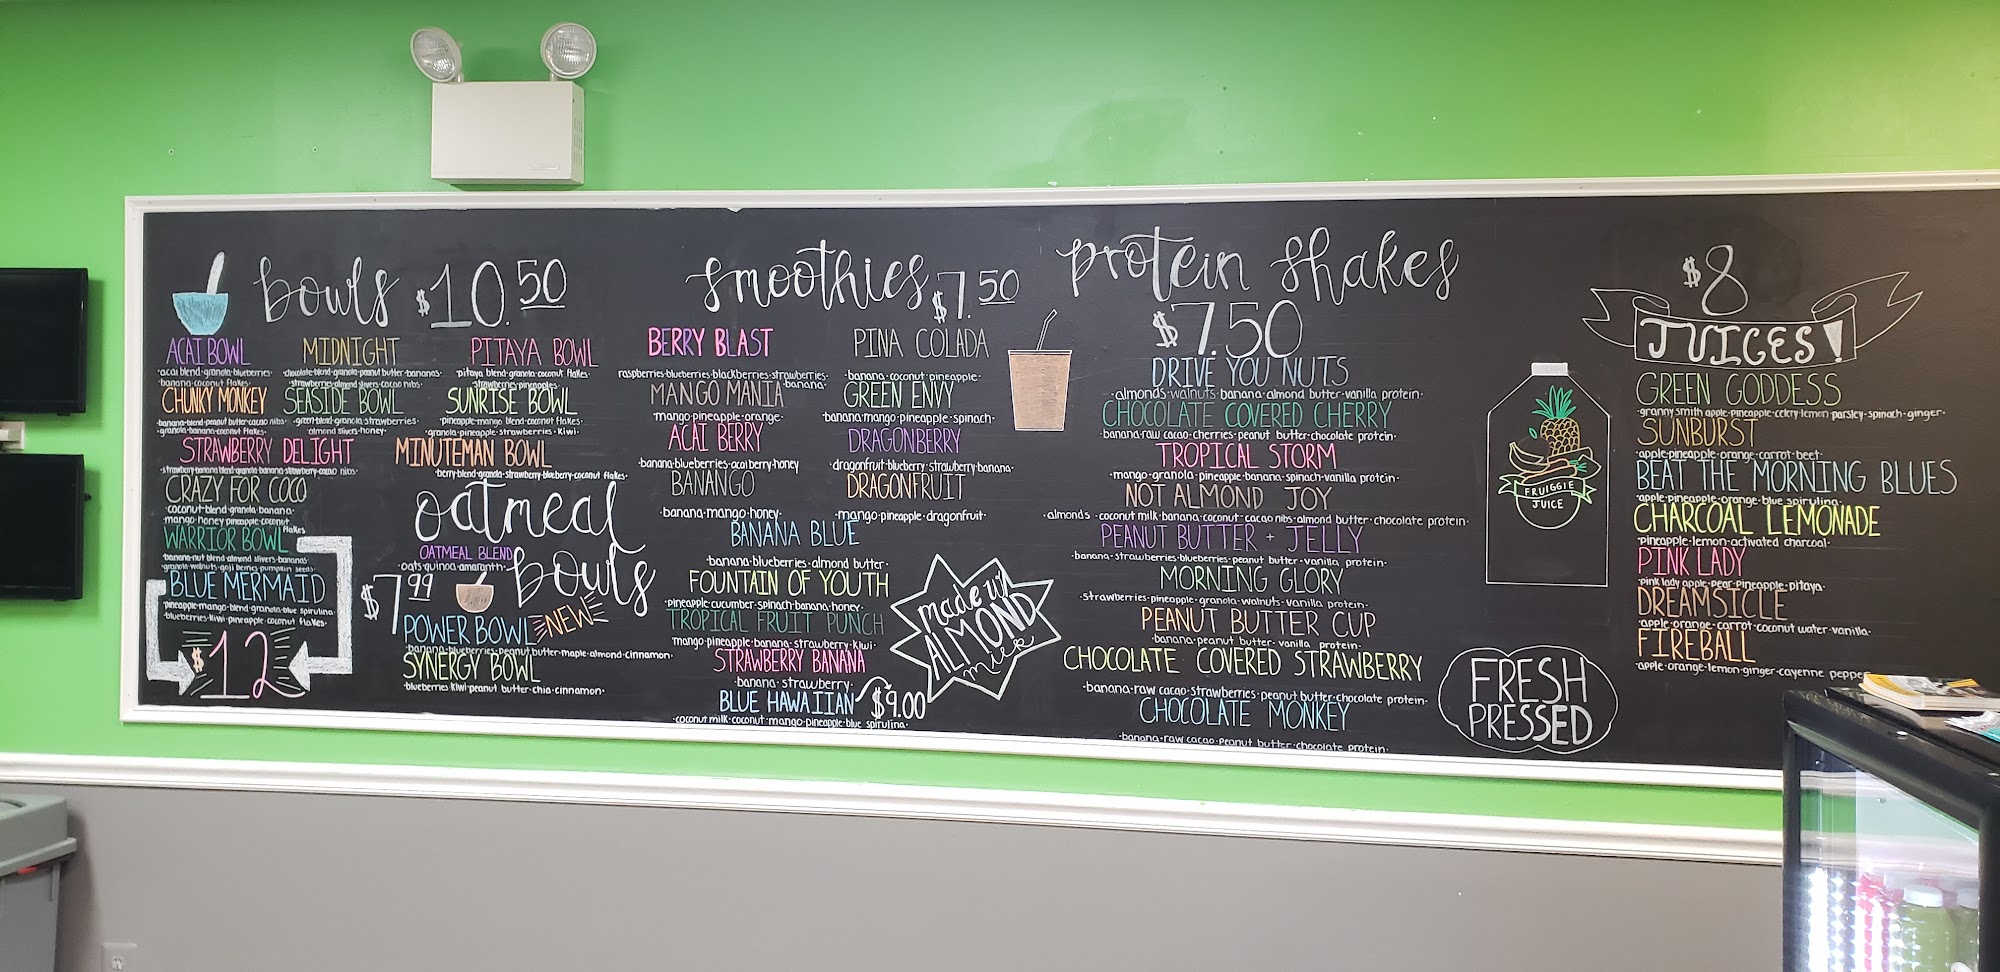 bowls $10.50
ACAI BOWL
·acai blend·granola·blueberries·
·banana·coconut flakes·
MIDNIGHT
·chocolate blend·granola·peanut butter·bananas·
·strawberries·almond slivers·cacao nibs·
PITAYA BOWL
·pitaya blend·granola·coconut flakes·
·strawberries·pineapples·
CHUNKY MONKEY
·banana·blend·peanut butter·cacao nibs·
·granola·banana·coconut flakes·
SEASIDE BOWL
·green blend·granola·strawberries·
·almond slivers·honey·
SUNRISE BOWL
·pineapple·mango blend·coconut flakes·
·granola·pineapple·strawberries·kiwi·
STRAWBERRY DELIGHT
·strawberry banana blend·granola·banana·strawberry·cacao nibs·
MINUTEMAN BOWL
·berry blend·granola·strawberry·blueberry·coconut flakes·
CRAZY FOR COCO
·coconut blend·granola·banana·
·mango·honey·pineapple·coconut flakes
WARRIOR BOWL
·banana·nut blend·almond slivers·bananas·
·granola·walnuts·goji berries·pumpkin seeds·
BLUE MERMAID
·pineapple·mango·blend·granola·blue spirulina·
·blueberries·kiwi·pineapple·coconut flakes·
$12
oatmeal
bowls
OATMEAL BLEND
·oats·quinoa·amaranth·
$7.99
POWER BOWL NEW
·banana·blueberries·peanut butter·maple·almond·cinnamon·
SYNERGY BOWL
·blueberries·kiwi·peanut butter·chia·cinnamon·
smoothies $7.50
BERRY BLAST
·raspberries·blueberries·blackberries·strawberries·
·banana·
PINA COLADA
·banana·coconut·pineapple·
MANGO MANIA
·mango·pineapple·orange·
GREEN ENVY
·banana·mango·pineapple·spinach·
ACAI BERRY
·banana·blueberries·acai berry·honey
DRAGONBERRY
·dragonfruit·blueberry·strawberry·banana·
BANANGO
·banana·mango·honey·
DRAGONFRUIT
·mango·pineapple·dragonfruit·
BANANA BLUE
·banana·blueberries·almond butter·
FOUNTAIN OF YOUTH
·pineapple·cucumber·spinach·banana·honey·
TROPICAL FRUIT PUNCH
·mango·pineapple·banana·strawberry·kiwi·
STRAWBERRY BANANA
·banana·strawberry·
BLUE HAWAIIAN $9.00
·coconut milk·coconut·mango·pineapple·blue spirulina·
made w/
ALMOND
milk
protein shakes
$7.50
DRIVE YOU NUTS
·almonds·walnuts·banana·almond butter·vanilla protein·
CHOCOLATE COVERED CHERRY
·banana·raw cacao·cherries·peanut butter·chocolate protein·
TROPICAL STORM
·mango·granola·pineapple·banana·spinach·vanilla protein·
NOT ALMOND JOY
·almonds·coconut milk·banana·coconut·cacao nibs·almond butter·chocolate protein·
PEANUT BUTTER + JELLY
·banana·strawberries·blueberries·peanut butter·vanilla protein·
MORNING GLORY
·strawberries·pineapple·granola·walnuts·vanilla protein·
PEANUT BUTTER CUP
·banana·peanut butter·vanilla protein·
CHOCOLATE COVERED STRAWBERRY
·banana·raw cacao·strawberries·peanut butter·chocolate protein·
CHOCOLATE MONKEY
·banana·raw cacao·peanut butter·chocolate protein·
FRUIGGIE
JUICE
FRESH
PRESSED
$8
JUICES!
GREEN GODDESS
·granny smith apple·pineapple·celery·lemon·parsley·spinach·ginger·
SUNBURST
·apple·pineapple·orange·carrot·beet·
BEAT THE MORNING BLUES
·apple·pineapple·orange·blue spirulina·
CHARCOAL LEMONADE
·pineapple·lemon·activated charcoal·
PINK LADY
·pink lady apple·pear·pineapple·pitaya·
DREAMSICLE
·apple·orange·carrot·coconut water·vanilla·
FIREBALL
·apple·orange·lemon·ginger·cayenne pepper